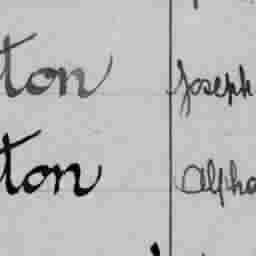 ton Joseph
ton Alpho